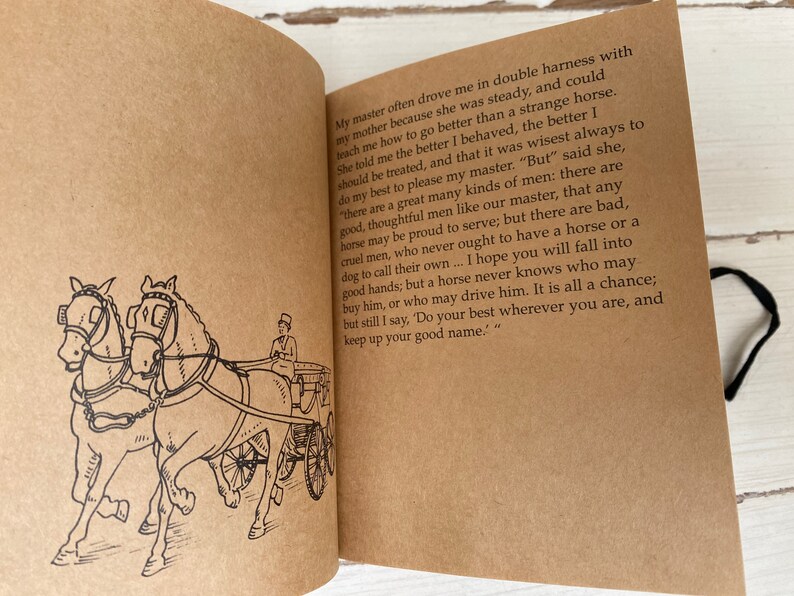 My master often drove me in double harness with
my mother because she was steady, and could
teach me how to go better than a strange horse.
She told me the better I behaved, the better I
should be treated, and that it was wisest always to
do my best to please my master. “But” said she,
“there are a great many kinds of men: there are
good, thoughtful men like our master, that any
horse may be proud to serve; but there are bad,
cruel men, who never ought to have a horse or a
dog to call their own ... I hope you will fall into
good hands; but a horse never knows who may
buy him, or who may drive him. It is all a chance;
but still I say, ‘Do your best wherever you are, and
keep up your good name.’ “